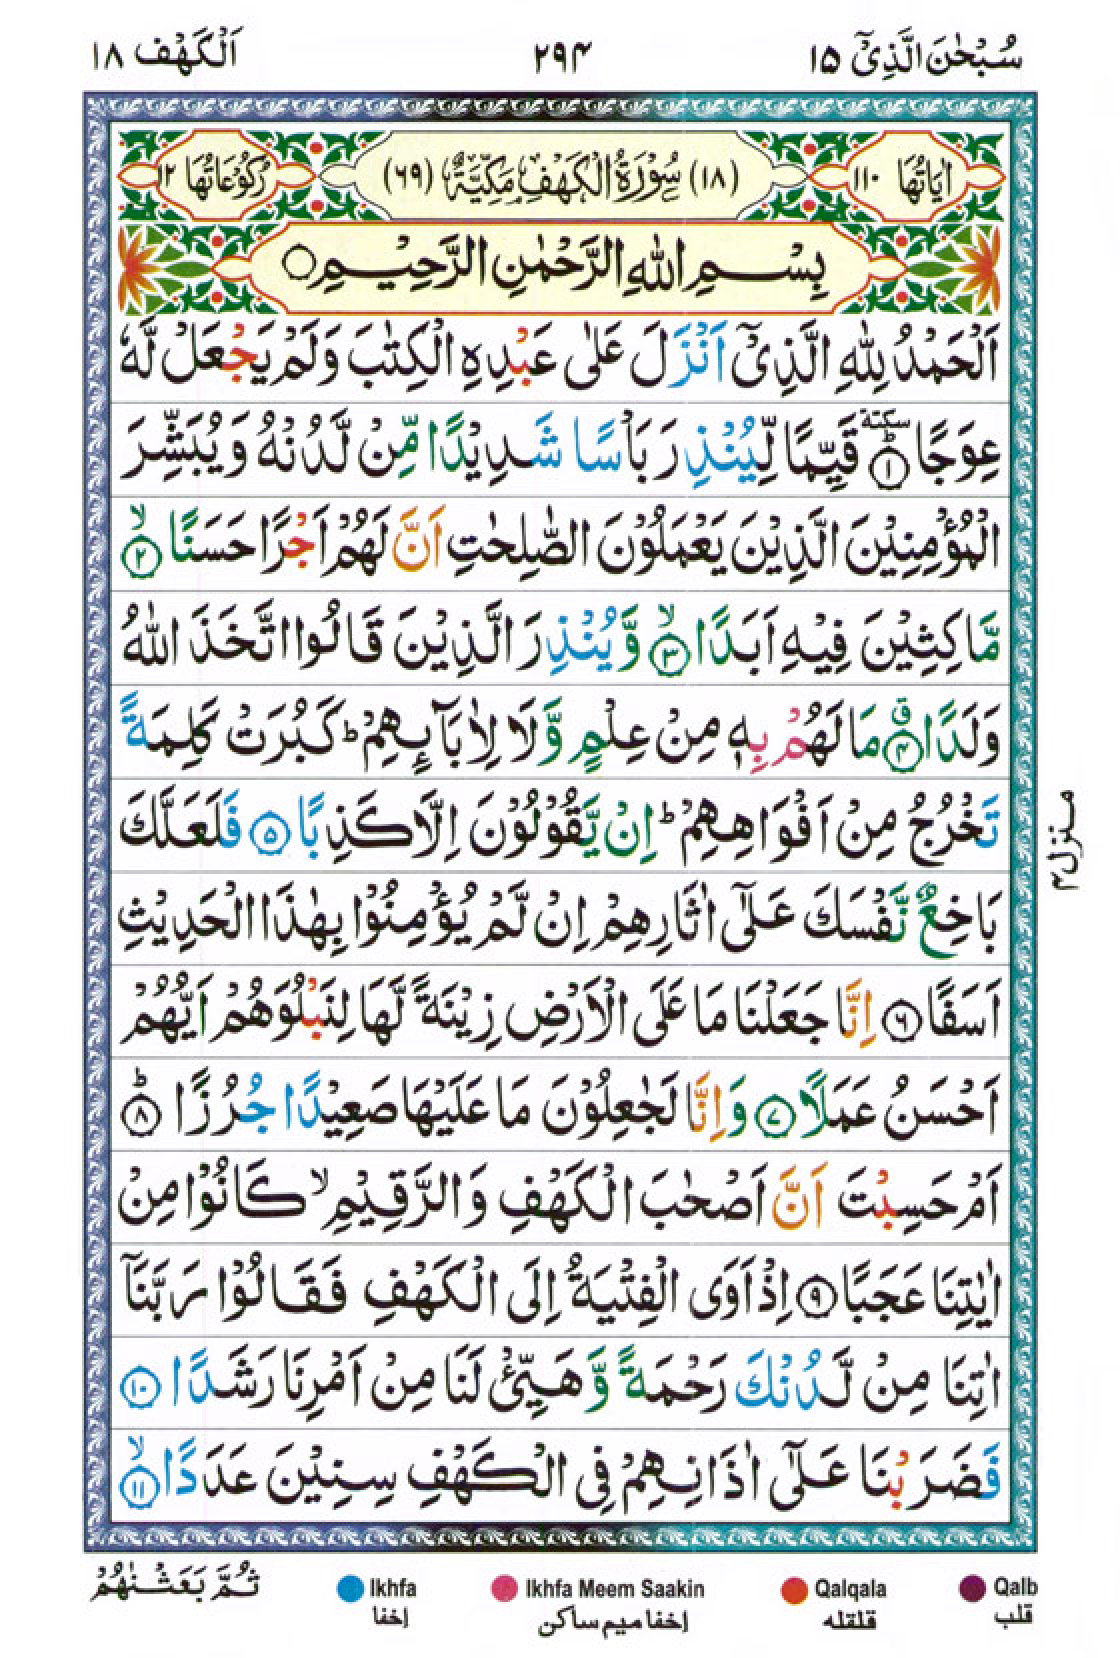 سُبْحٰنَ الَّذِیْۤ ١٥ ٢٩٤ اَلْكَهْف ١٨
اٰيَاتُهَا ١١٠ (١٨) سُوْرَةُ الْكَهْفِ مَكِّيَّةٌ (٦٩) رُكُوْعَاتُهَا ١٢
بِسْمِ اللّٰهِ الرَّحْمٰنِ الرَّحِيْمِ ○
اَلْحَمْدُ لِلّٰهِ الَّذِیْۤ اَنْزَلَ عَلٰى عَبْدِهِ الْكِتٰبَ وَلَمْ يَجْعَلْ لَّهٗ
عِوَجًا ؕ سكتة ١ قَيِّمًا لِّيُنْذِرَ بَاْسًا شَدِيْدًا مِّنْ لَّدُنْهُ وَيُبَشِّرَ
الْمُؤْمِنِيْنَ الَّذِيْنَ يَعْمَلُوْنَ الصّٰلِحٰتِ اَنَّ لَهُمْ اَجْرًا حَسَنًا ۙ ٢
مَّاكِثِيْنَ فِيْهِ اَبَدًا ۙ ٣ وَّيُنْذِرَ الَّذِيْنَ قَالُوا اتَّخَذَ اللّٰهُ
وَلَدًا ۗ ٤ مَا لَهُمْ بِهٖ مِنْ عِلْمٍ وَّلَا لِاٰبَآىِٕهِمْ ؕ كَبُرَتْ كَلِمَةً
تَخْرُجُ مِنْ اَفْوَاهِهِمْ ؕ اِنْ يَّقُوْلُوْنَ اِلَّا كَذِبًا ٥ فَلَعَلَّكَ
بَاخِعٌ نَّفْسَكَ عَلٰۤى اٰثَارِهِمْ اِنْ لَّمْ يُؤْمِنُوْا بِهٰذَا الْحَدِيْثِ
اَسَفًا ٦ اِنَّا جَعَلْنَا مَا عَلَى الْاَرْضِ زِيْنَةً لَّهَا لِنَبْلُوَهُمْ اَيُّهُمْ
اَحْسَنُ عَمَلًا ٧ وَاِنَّا لَجٰعِلُوْنَ مَا عَلَيْهَا صَعِيْدًا جُرُزًا ؕ ٨
اَمْ حَسِبْتَ اَنَّ اَصْحٰبَ الْكَهْفِ وَالرَّقِيْمِ ۙ كَانُوْا مِنْ
اٰيٰتِنَا عَجَبًا ٩ اِذْ اَوَى الْفِتْيَةُ اِلَى الْكَهْفِ فَقَالُوْا رَبَّنَاۤ
اٰتِنَا مِنْ لَّدُنْكَ رَحْمَةً وَّهَيِّئْ لَنَا مِنْ اَمْرِنَا رَشَدًا ١٠
فَضَرَبْنَا عَلٰۤى اٰذَانِهِمْ فِى الْكَهْفِ سِنِيْنَ عَدَدًا ۙ ١١
منزل ٤
ثُمَّ بَعَثْنٰهُمْ
Ikhfa Ikhfa Meem Saakin Qalqala Qalb
إخفا إخفا ميم ساكن قلقله قلب